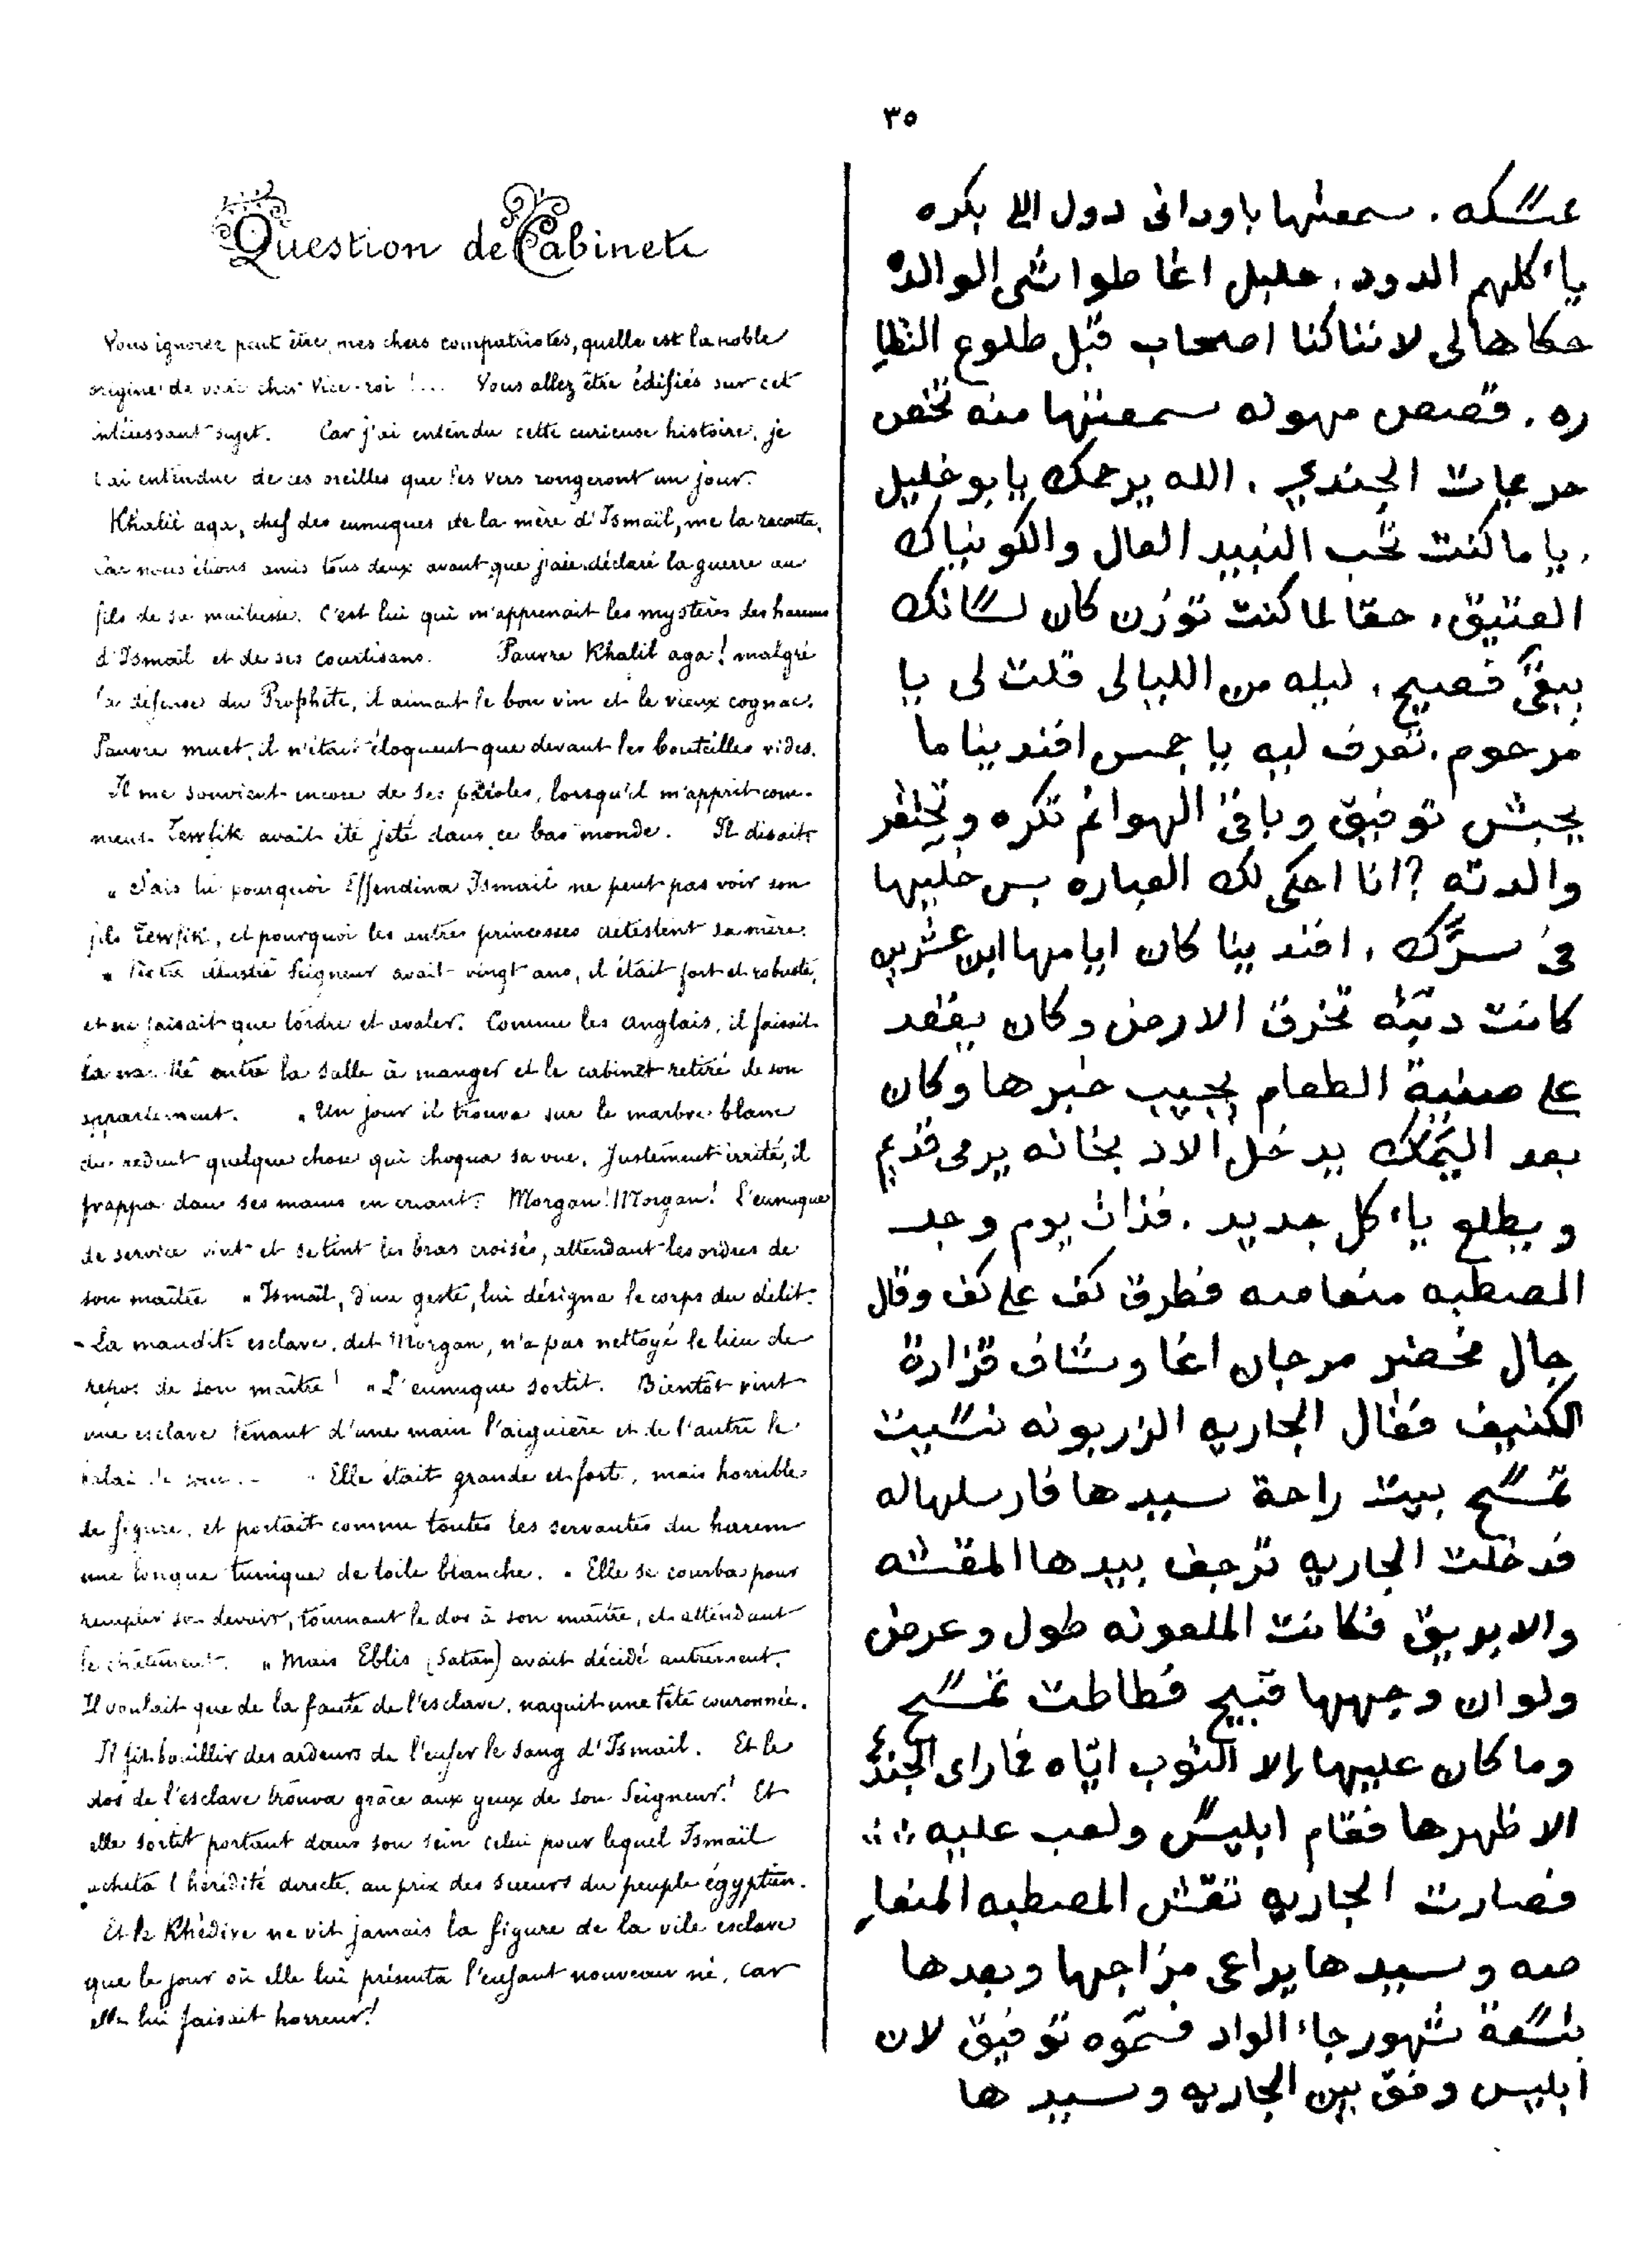 ٣٥
Question de Cabinet
Vous ignorez peut être, mes chers compatriotes, quelle est la noble
origine de votre cher Vice-roi !... Vous allez être édifiés sur cet
intéressant sujet. Car j'ai entendu cette curieuse histoire, je
l'ai entendue de ces oreilles que les vers rongeront un jour.
Khalil aga, chef des eunuques de la mère d'Ismaïl, me la raconta,
car nous étions amis tous deux avant que j'aie déclaré la guerre au
fils de sa maîtresse. C'est lui qui m'apprenait les mystères des harems
d'Ismaïl et de ses courtisans. Pauvre Khalil aga! malgré
la défense du Prophète, il aimait le bon vin et le vieux cognac.
Pauvre muet, il n'était éloquent que devant les bouteilles vides.
Il me souvient encore de ses paroles, lorsqu'il m'apprit com-
ment Tewfik avait été jeté dans ce bas monde. Il disait:
" Sais tu pourquoi Effendina Ismaïl ne peut pas voir son
fils Tewfik, et pourquoi les autres princesses détestent sa mère.
" Notre illustre Seigneur avait vingt ans, il était fort et robuste,
et ne faisait que tordre et avaler. Comme les anglais, il faisait
la navette entre la salle à manger et le cabinet retiré de son
appartement. " Un jour il trouva sur le marbre blanc
du réduit quelque chose qui choqua sa vue. Justement irrité, il
frappa dans ses mains en criant: Morgan! Morgan! L'eunuque
de service vint et se tint les bras croisés, attendant les ordres de
son maître " Ismaïl, d'un geste, lui désigna le corps du délit.
- La maudite esclave, dit Morgan, n'a pas nettoyé le lieu de
repos de son maître! " L'eunuque sortit. Bientôt vint
une esclave tenant d'une main l'aiguière et de l'autre le
balai de " Elle était grande et forte, mais horrible
de figure, et portait comme toutes les servantes du harem
une longue tunique de toile blanche. " Elle se courba pour
remplir son devoir, tournant le dos à son maître, et attendant
le châtiment. " Mais Eblis (Satan) avait décidé autrement.
Il voulait que de la faute de l'esclave, naquit une tête couronnée.
Il fit bouillir des ardeurs de l'enfer le sang d'Ismaïl. Et le
dos de l'esclave trouva grâce aux yeux de son Seigneur! Et
elle sortit portant dans son sein celui pour lequel Ismaïl
acheta l'hérédité directe, au prix des sueurs du peuple égyptien.
Et le Khédive ne vit jamais la figure de la vile esclave
que le jour où elle lui présenta l'enfant nouveau né, car
elle lui faisait horreur!
عسكه . سمعتها باودانى دول اللى بكره
ياءكلهم الدود . خليل اغا طواشى الوالده
حكاها لى لاننا كنا اصحاب قبل طلوع النظا
ره . قصص مهوله سمعتها منه تخص
حرمات الجندي . الله يرحمك يا بو خليل
. ياما كنت تحب النبيد العال والكونياك
العتيق . حقا لما كنت توزن كان لسانك
يبقى فصيح . ليله من الليالى قلت لى يا
مرحوم . تعرف ليه يا جمس افندينا ما
يحبش توفيق وباقى الهوانم تكره وتحتقر
والدته ? انا احكى لك العباره بس خليها
فى سرّك . افندينا كان ايامها ابن عشرين
كانت دبّته تخرق الارض وكان يقعد
على صينية الطعام يجيب خبرها وكان
بعد اليَمَك يدخل الادبخانه يرمى قديم
ويطلع ياءكل جديد . فذات يوم وجد
المصطبه منغاصه فطرق كف على كف وقال
جال فحضر مرجان اغا وشاف قزارة
الكنيف فقال الجاريه الزربونه نسيت
تمسح بيت راحة سيدها فارسلها له
فدخلت الجاريه ترجف بيدها المقشه
والابريق فكانت الملعونه طول وعرض
ولو ان وجهها قبيح فطاطت تمسح
وما كان عليها إلا التوب ايّاه فما راى الجندي
الا ظهرها فقام ابليس ولعب عليه
فصارت الجاريه تقش المصطبه المنغا
صه وسيدها يراعى مزاجها وبعدها
بتسعة شهور جاء الواد فسمّوه توفيق لان
ابليس وفق بين الجاريه وسيدها